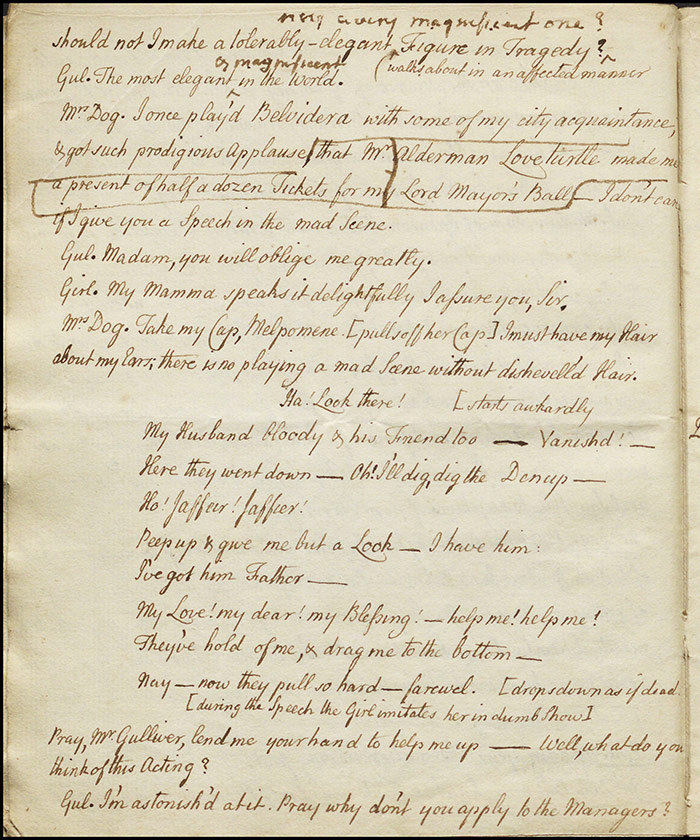 nay a very magnificent one?
should not I make a tolerably-elegant Figure in Tragedy?
& magnificent (walks about in an affected manner
Gul. The most elegant in the World.
Mrs Dog. I once play'd Belvidera with some of my city acquaintance,
& got such prodigious Applause, that Mr Alderman Loveturtle made me
a present of half a dozen Tickets for my Lord Mayor's Ball — I don't care
if I give you a Speech in the mad Scene.
Gul. Madam, you will oblige me greatly.
Girl. My Mamma speaks it delightfully I assure you, Sir.
Mrs Dog. Take my Cap, Melpomene. [pulls off her Cap] I must have my Hair
about my Ears; there is no playing a mad Scene without dishevell'd Hair.
Ha! Look there! [starts awkardly
My Husband bloody & his Friend too — Vanishd! —
Here they went down — Oh! I'll dig, dig the Den up —
Ho! Jaffeir! Jaffier!
Peep up & give me but a Look — I have him:
I've got him Father —
My Love! my dear! my Blessing! — help me! help me!
They've hold of me, & drag me to the bottom —
Nay — now they pull so hard — farewel. [drops down as if dead.
[during the Speech the Girl imitates her in dumb Show]
Pray, Mr Gulliver, lend me your hand to help me up — Well, what do you
think of this Acting?
Gul. I'm astonish'd at it. Pray why don't you apply to the Managers?